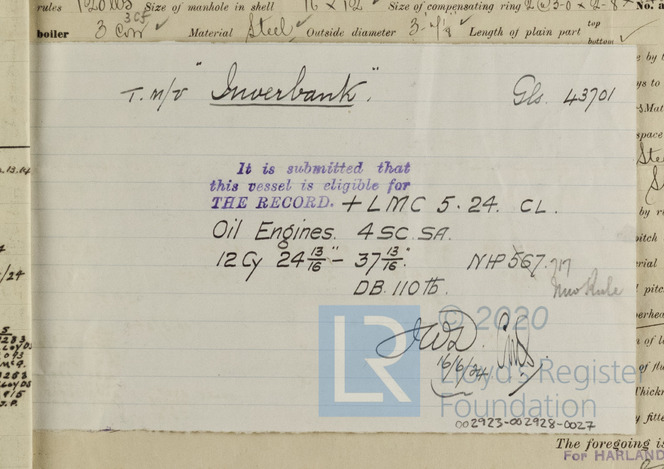 rules 120 lbs Size of manhole in shell 16 x 12 Size of compensating ring 2 @ 3-0 x 2-8 No. a
boiler 3 Corr Material Steel Outside diameter Length of plain part top
bottom
T. m/v "Inverbank". Gls. 43701
It is submitted that
this vessel is eligible for
THE RECORD. + LMC 5.24. CL.
Oil Engines. 4 SC. SA.
12 Cy 24 13/16" - 37 13/16". NHP 567. 717
DB. 110 lb. New Rule
© 2020
JWD.
16/6/24
LR
Lloyd's Register
Foundation
002923-002928-0027
The foregoing is
For HARLAND